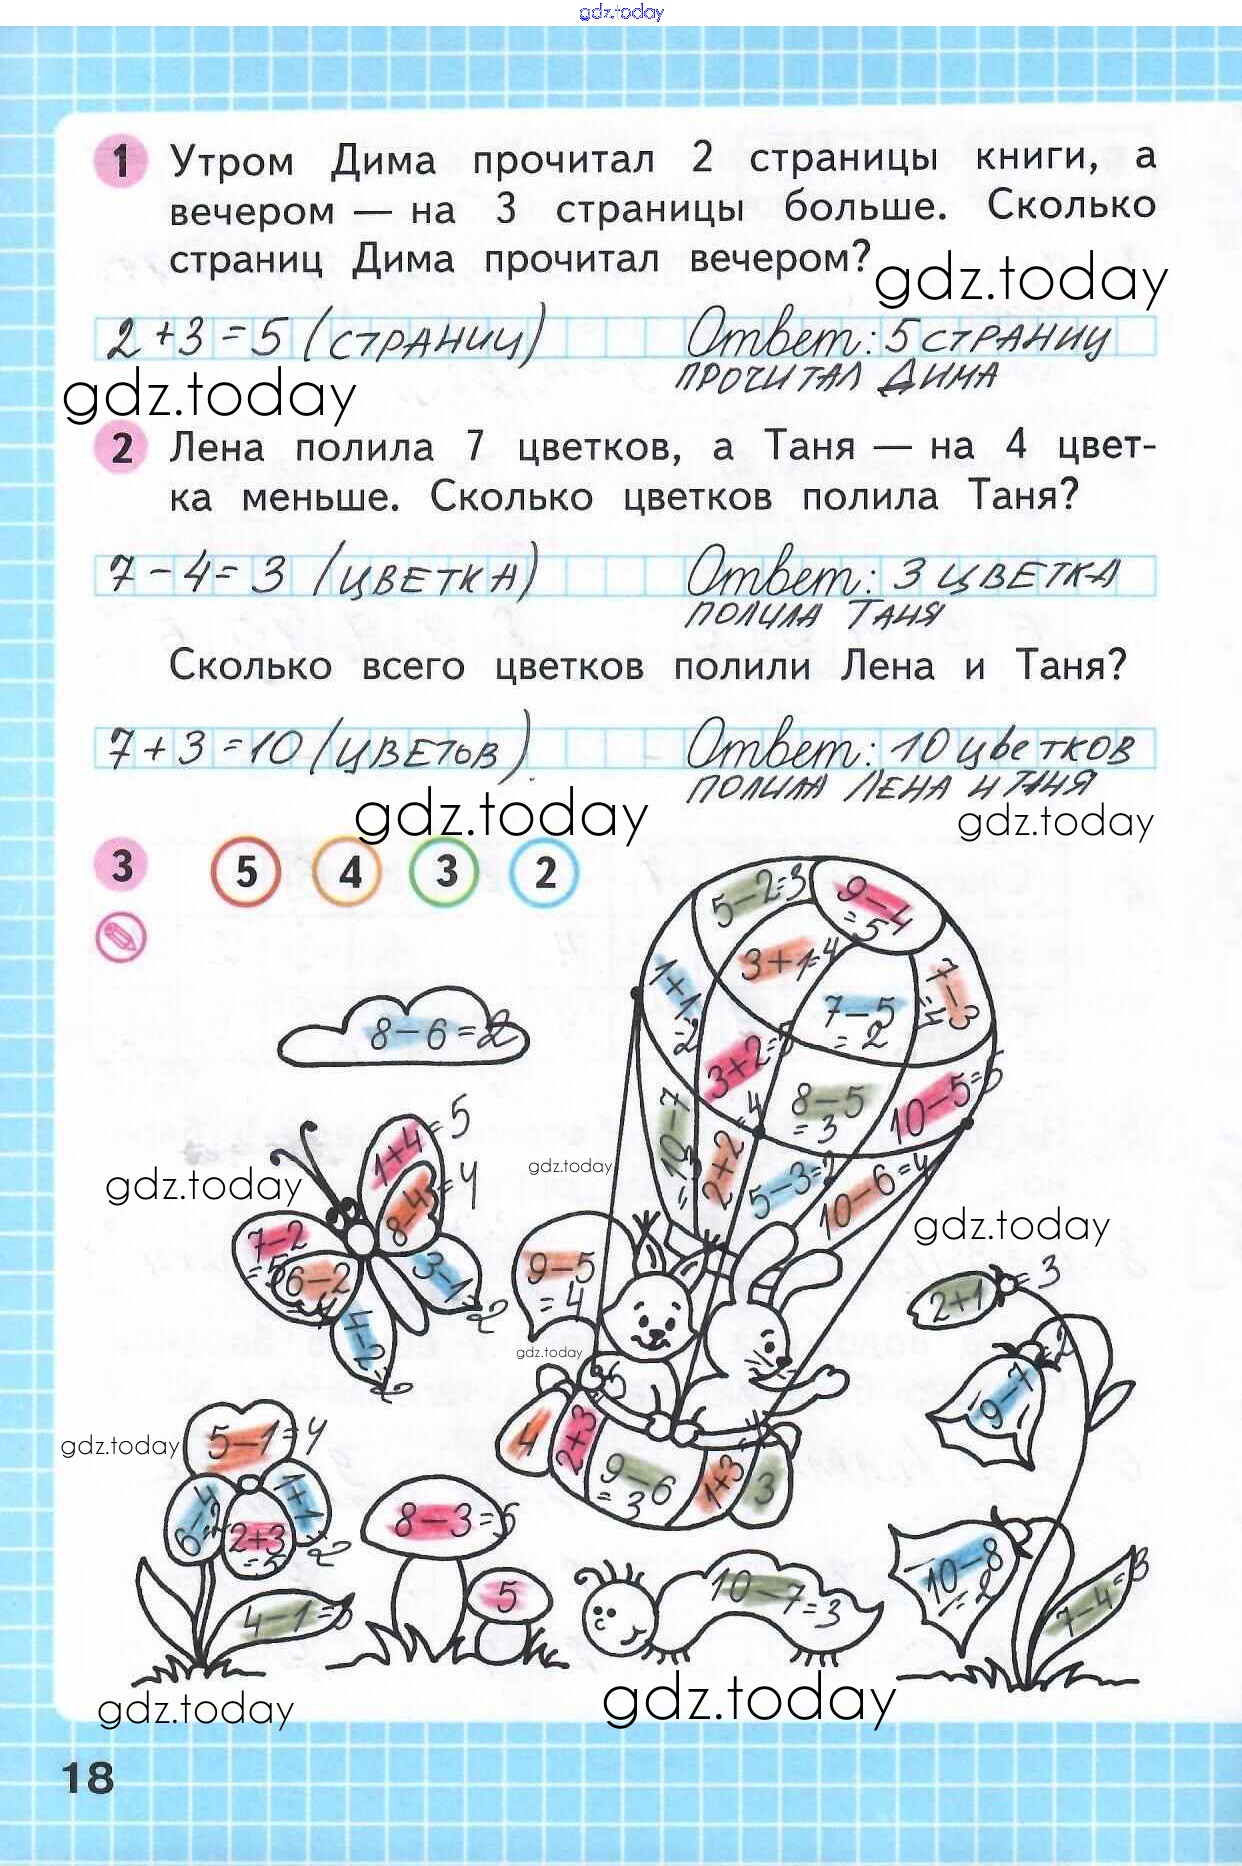 gdz.today
1 Утром Дима прочитал 2 страницы книги, а
вечером — на 3 страницы больше. Сколько
страниц Дима прочитал вечером?
gdz.today
2+3=5 (страниц) Ответ: 5 страниц
прочитал Дима
gdz.today
2 Лена полила 7 цветков, а Таня — на 4 цвет-
ка меньше. Сколько цветков полила Таня?
7-4=3 (цветка) Ответ: 3 цветка
полила Таня
Сколько всего цветков полили Лена и Таня?
7+3=10 (цветов). Ответ: 10 цветков
полили Лена и Таня
gdz.today
gdz.today
3 5 4 3 2
5-2=3
9-4
=5
3+1=4
1+1
=2
7-5
=2
7-3
=4
8-6=2
3+2=5
8-5
=3
10-5=5
10-7
=3
2+2
=4
5-3=2
10-6=4
1+4=5
8-4=4
gdz.today
gdz.today
gdz.today
7-2
=5
6-2
=4
3-1
=2
4-2
=2
9-5
=4
gdz.today
2+1=3
9-7
=2
gdz.today
5-1=4
6-4
=2
1+1
=2
2+3
=5
4-1=3
4
2+3
=5
9-6
=3
1+3
3
8-3=5
5
10-7=3
10-8
=2
7-4=3
gdz.today
gdz.today
18